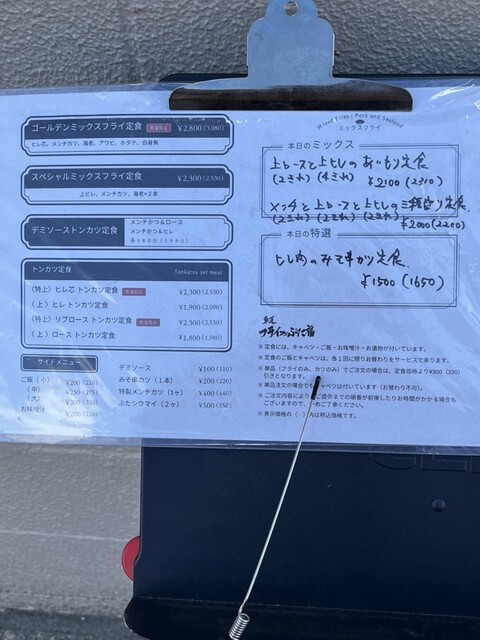 ゴールデンミックスフライ定食 数量限定 ¥2,800(3,080)
ヒレ芯、メンチカツ、海老、アワビ、ホタテ、白身魚
スペシャルミックスフライ定食 ¥2,300(2,530)
上ヒレ、メンチカツ、海老×2本
デミソーストンカツ定食
メンチかつ&ロース
メンチかつ&ヒレ
各1800(1980)
トンカツ定食 Tonkatsu set meal
〈特上〉ヒレ芯 トンカツ定食 数量限定 ¥2,300(2,530)
〈上〉ヒレ トンカツ定食 ¥1,900(2,090)
〈特上〉リブロース トンカツ定食 数量限定 ¥2,300(2,530)
〈上〉ロース トンカツ定食 ¥1,800(1,980)
サイドメニュー
ご飯(小) ¥200(220)
(中) ¥250(275)
(大) ¥300(330)
お味噌汁 ¥200(220)
デミソース ¥100(110)
みそ串カツ(1本) ¥200(220)
特製メンチカツ(1ケ) ¥400(440)
ぶたシウマイ(2ヶ) ¥500(550)
Mixed Fries | Pork and Seafood
ミックスフライ
本日のミックス
上ロースと上ヒレのあいもり定食
(2きれ) (4きれ) ¥2100(2310)
メンチと上ロースと上ヒレの三種盛り定食.
(2きれ) (2きれ) (2きれ) ¥2000(2200)
本日の特選
ヒレ肉のみそ串かつ定食.
¥1500(1650)
※ 定食には、キャベツ・ご飯・お味噌汁・お漬物が付いています。
※ 定食のご飯とキャベツは、各1回に限りお替わりをサービスで承ります。
※ 単品(フライのみ、カツのみ)でご注文の場合は、定食価格より¥300(330)
引きとなります。
※ 単品注文の場合でもキャベツは付いています(お替わり不可)。
※ ご注文内容により、ご提供までの順番が前後したりお時間がかかる場合も
ございますので、予めご了承ください。
※ 表示価格の( )内は税込価格です。